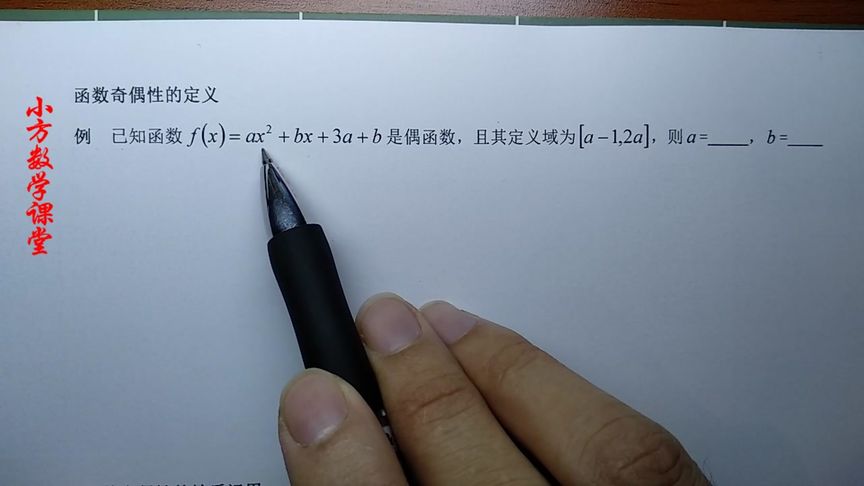 函数奇偶性的定义
例 已知函数 f(x)=ax²+bx+3a+b 是偶函数，且其定义域为[a−1,2a]，则a=____，b=____
小方数学课堂